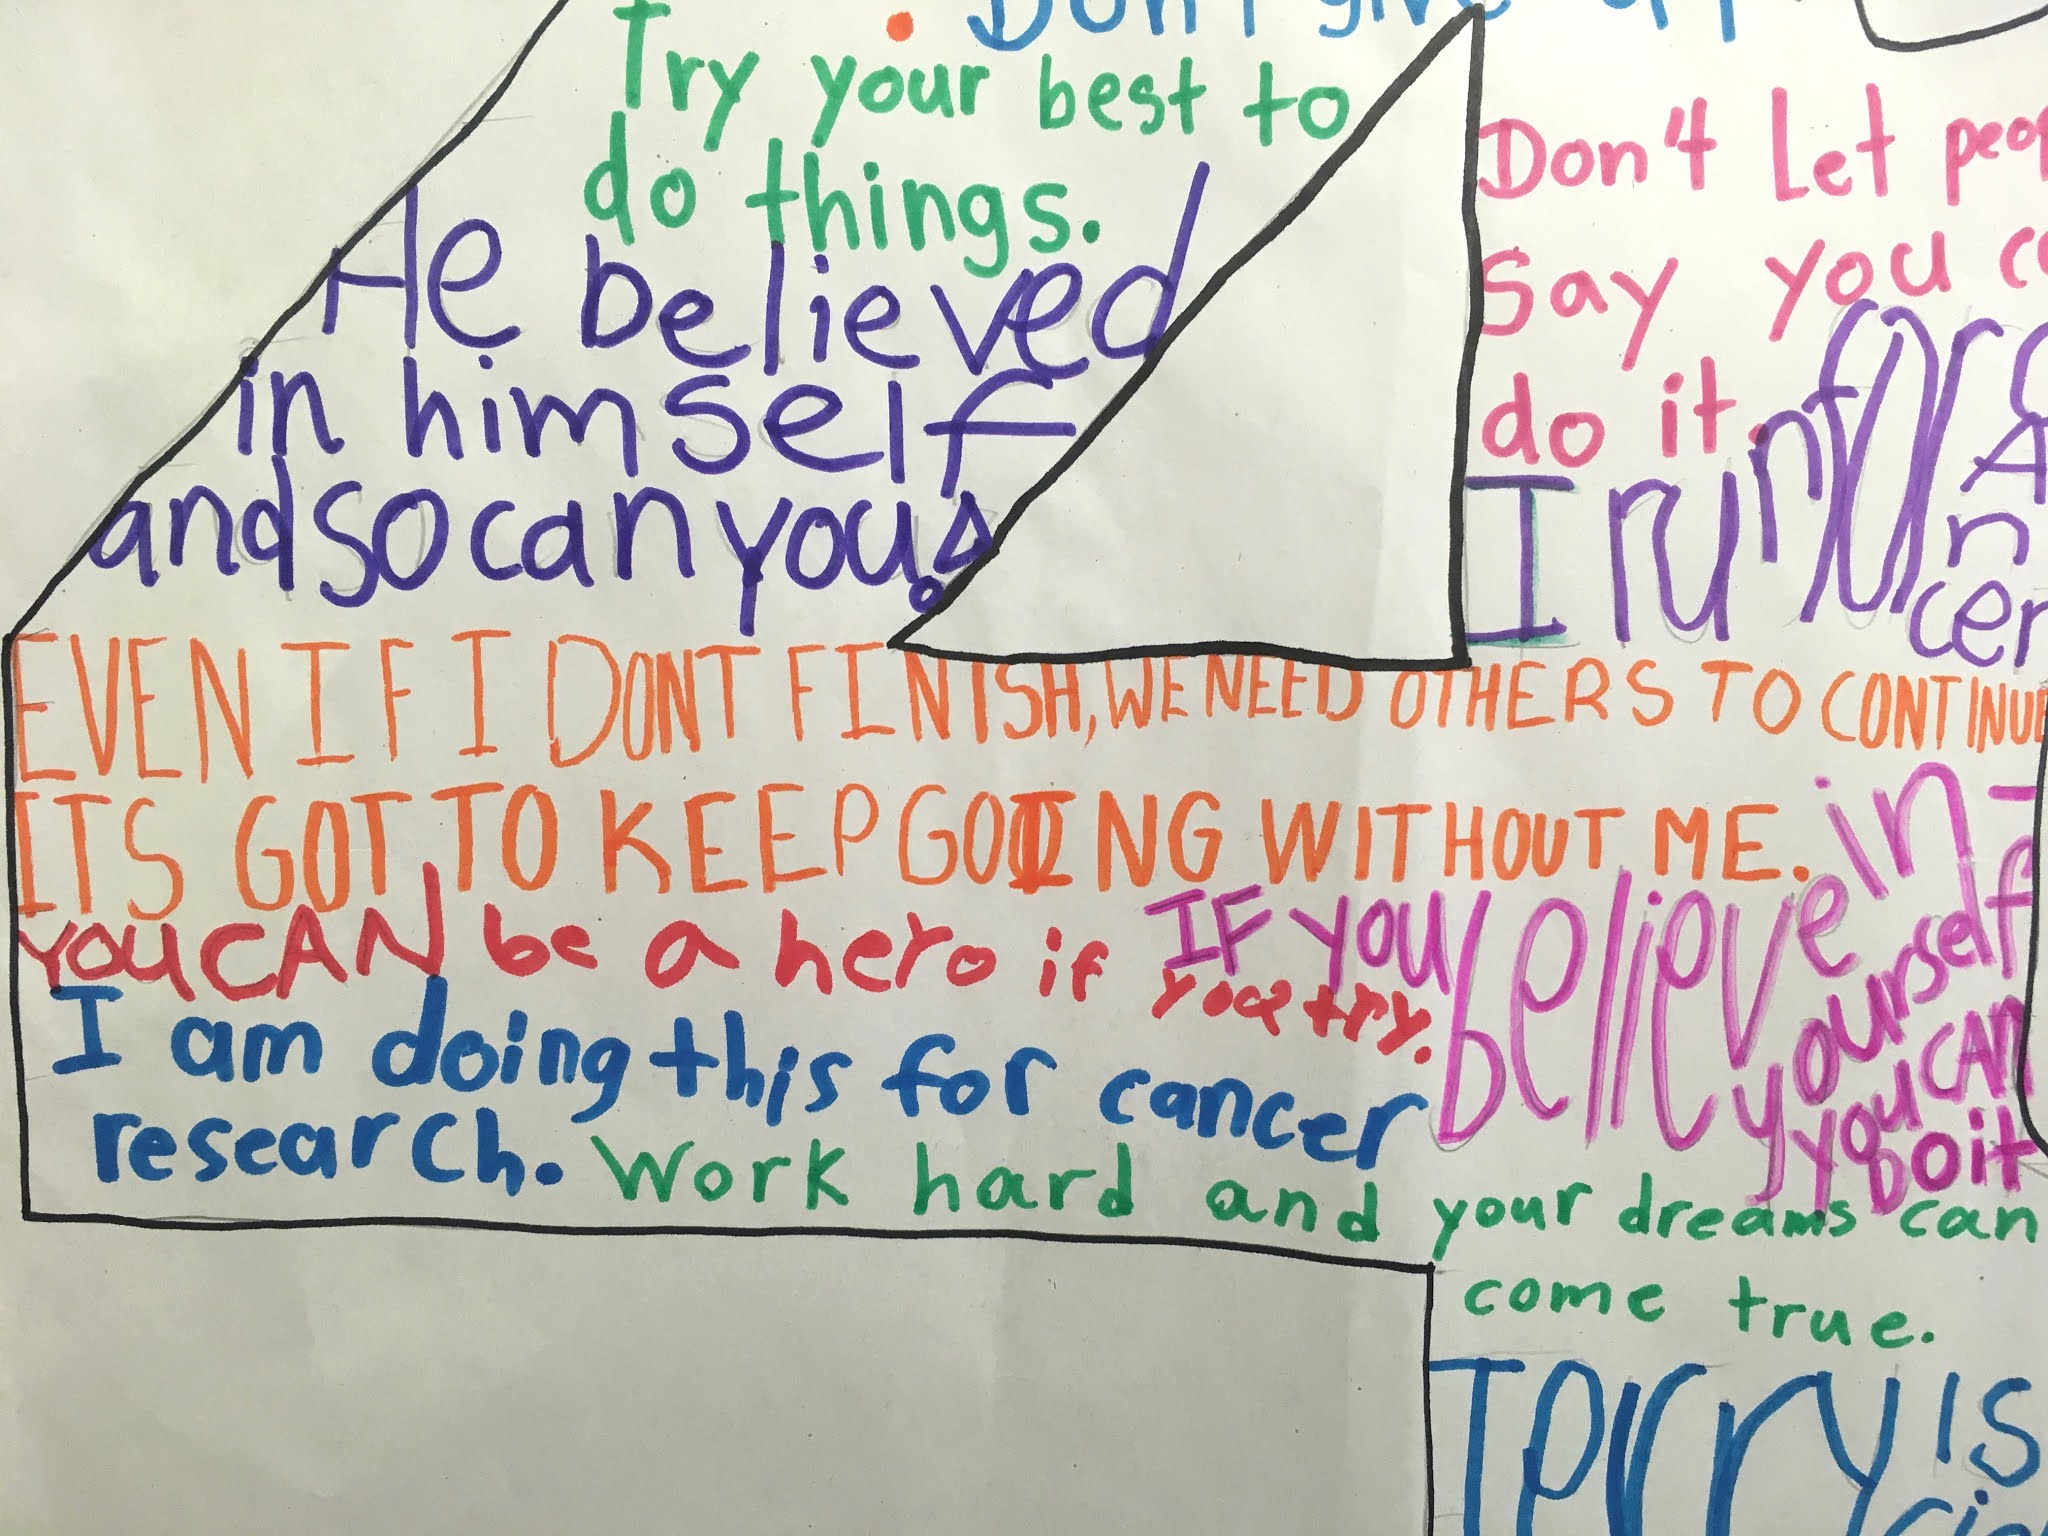 Don't give
Try your best to
do things.
He believed
in himself
and so can you!
Don't Let
say you
do it.
I run for
A
n
cer
EVEN IF I DONT FINISH, WE NEED OTHERS TO CONTINUE
ITS GOT TO KEEP GOING WITHOUT ME.
YOU CAN be a hero if
you try.
IF you believe in
yourself
you CAN
Do it
I am doing this for cancer
research.
Work hard and your dreams can
come true.
Terry is